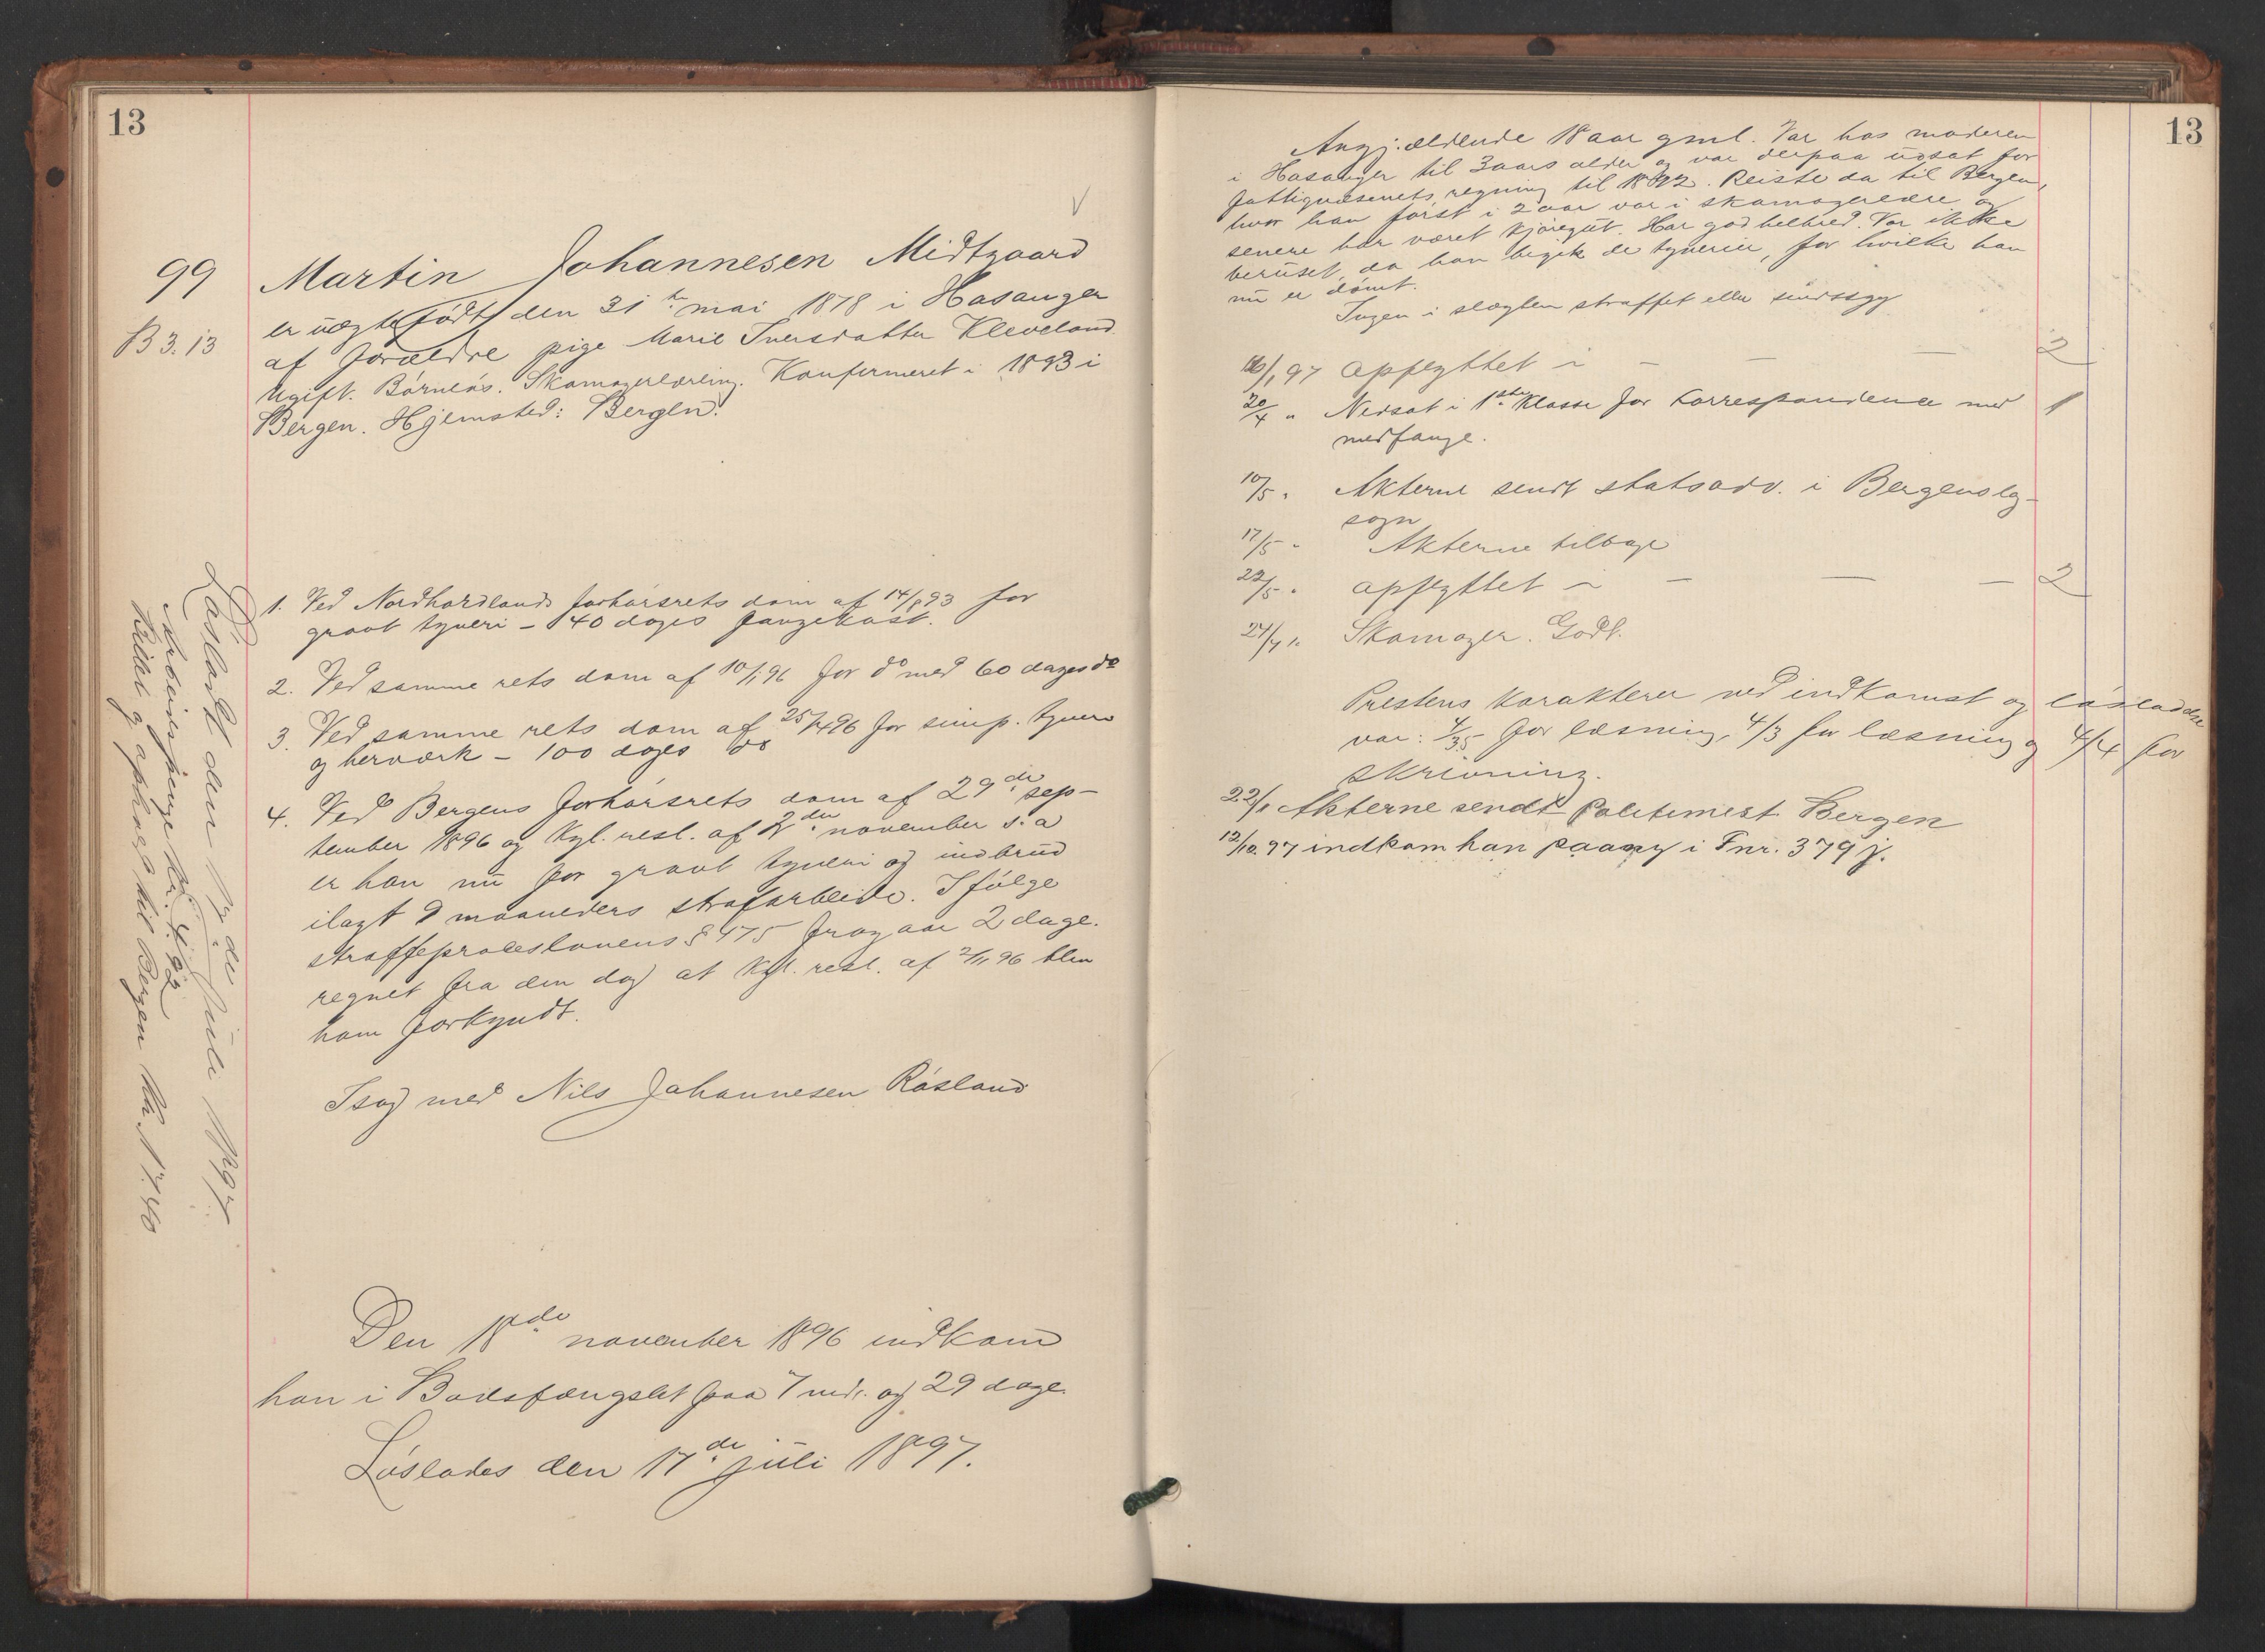 13
99
B 3.13
Martin Johannesen Midtgaard
er uægte født den 31te mai 1878 i Hosanger
af forældre pige Marie Iversdatter Kleveland.
Ugift. Børnløs. Skomagerlærling. Konfirmeret i 1893 i
Bergen. Hjemsted: Bergen.
1. Ved Nordhordlands forhørsrets dom af 14/8 93 for
grovt tyveri – 40 dages fangekost.
2. Ved samme rets dom af 10/1 96 for do med 60 dages do
3. Ved samme rets dom af 25/4 96 for simp. tyveri
og hærværk – 100 dages do
4. Ved Bergens forhørsrets dom af 29de sep-
tember 1896 og kgl. resl. af 2den november s. a
er han nu for grovt tyveri og indbrud
ilagt 9 maaneders strafarbeide. Ifølge
straffeproceslovens § 475 fragaar 2 dage.
regnet fra den dag at kgl. resl. af 2/11 96 blev
ham forkyndt.
I sag med Nils Johannesen Røsland
Den 18de november 1896 indkom
han i Bodsfængslet paa 7 mdr. og 29 dage.
Løslades den 17de juli 1897.
Løsladt den 17de juli 1897.
Arbeidspenge kr. 4.92
Billet og ophold til Bergen kr. 17.40
13
Angjældende 18 aar gml. Var hos moderen
i Hosanger til 3 aars alder og var derpaa udsat for
fattigvæsenets regning til 1892. Reiste da til Bergen,
hvor han først i 2 aar var i skomagerlære og
senere har været kjøregut. Har god helbred. Var ikke
beruset, da han begik de tyverier, for hvilke han
nu er dømt.
Ingen i slægten straffet eller sindssyg
16/1 97 Opflyttet i – – – 2
20/4 " Nedsat i 1ste Klasse for Korrespondence med 1
medfange.
10/5 " Akterne sendt statsadv. i Bergens lag-
sogn
17/5 " Akterne tilbage
22/5 " Opflyttet i – – – 2
24/7 " Skomager. Godt.
Prestens karakterer ved indkomst og løsladelse
var: 4/3.5 for læsning, 4/3 for læsning og 4/4 for
skrivning.
22/1 Akterne sendt Politimest. Bergen
12/10. 97 indkom han paany i Fnr. 379 j.